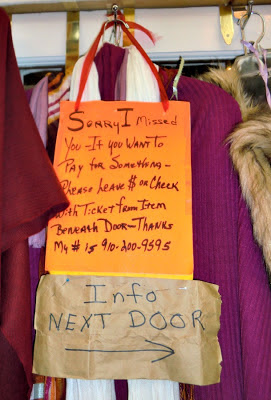 Sorry I Missed
You - If you Want To
Pay for Something -
Please Leave $ or Check
With Ticket from Item
Beneath Door - Thanks
My # is 910-200-9595
Info
NEXT DOOR